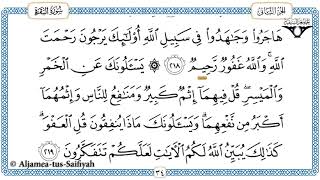 سُورَةُ الْبَقَرَةِ
الجزء الثاني
هَاجَرُوا وَجَٰهَدُوا فِي سَبِيلِ اللَّهِ أُو۟لَٰٓئِكَ يَرْجُونَ رَحْمَتَ
اللَّهِ ۚ وَاللَّهُ غَفُورٌ رَحِيمٌ ﴿٢١٨﴾ ۞ يَسْـَٔلُونَكَ عَنِ الْخَمْرِ
وَالْمَيْسِرِ ۖ قُلْ فِيهِمَا إِثْمٌ كَبِيرٌ وَمَنَٰفِعُ لِلنَّاسِ وَإِثْمُهُمَا
أَكْبَرُ مِن نَّفْعِهِمَا ۗ وَيَسْـَٔلُونَكَ مَاذَا يُنفِقُونَ قُلِ الْعَفْوَ ۗ
كَذَٰلِكَ يُبَيِّنُ اللَّهُ لَكُمُ الْءَايَٰتِ لَعَلَّكُمْ تَتَفَكَّرُونَ ﴿٢١٩﴾
٣٤
© Aljamea-tus-Saifiyah